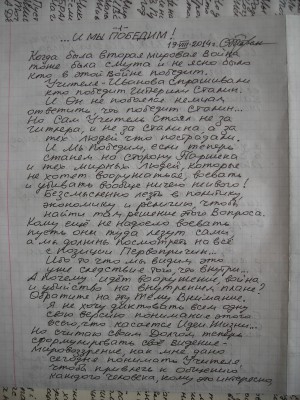 ...И МЫ ПОБЕДИМ!
Когда была вторая мировая война
тоже была смута и не ясно было
кто в этой войне победит.
Учителя Иванова спрашивали
кто победит Гитлер или Сталин.
И Он не побоялся немцам
ответить, что победит Сталин...
Но Сам Учитель Стоял не за
Гитлера, и не за Сталина а за
тех людей что пострадали.
И Мы Победим, если теперь
станем на сторону Паршека
и тех мирных Людей, которые
не хотят вооружаться, воевать
и убивать вообще никого не
Бессмысленно лезть в политику,
экономику и религию, чтобы
найти там решение этого Вопроса.
Кому ещё не надоело воевать
пусть они туда лезут сами
а мы должны посмотреть на всё
с позиции Первопричин...
Ибо то что мы видим это
уже следствие того что внутри...
А почему идёт вооружение, война
и убийство на внутреннем плане?
Обратите на эту Тему Внимание.
Я не хочу диктовать всем одну
свою версию понимания этого
всего, что касается Идеи Жизни...
Но считаю своим Долгом теперь
сформулировать своё видение-
Мировоззрение, как мне дано
сегодня понимать Учителя
чтобы привлечь к общению
каждого человека, кому это интересно